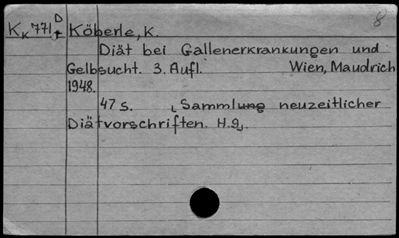 8
D
K K 771, Köberle, K.
Diät bei Gallenerkrankungen und
Gelbsucht. 3. Aufl. Wien, Maudrich
1948.
47 S. (Sammlung neuzeitlicher
Diätvorschriften. H. 9).